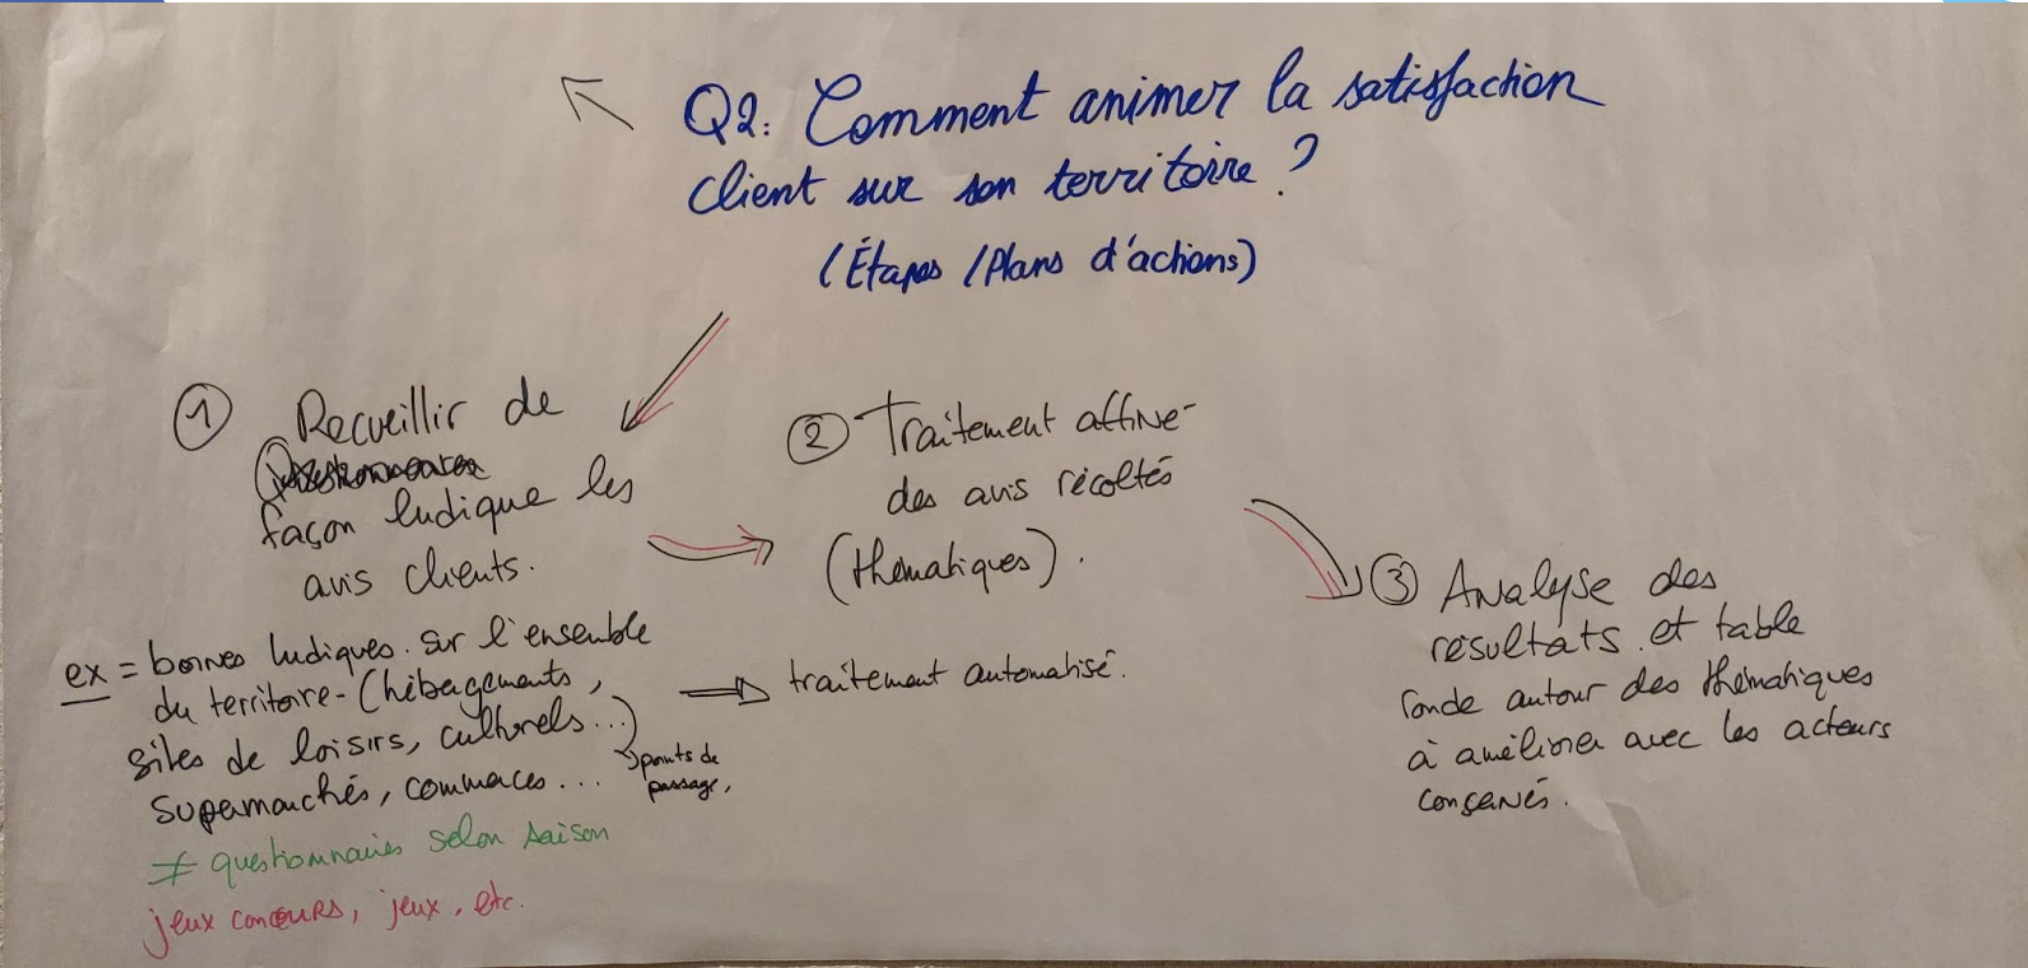 Q2: Comment animer la satisfaction
client sur son territoire ?
(Étapes / Plans d'actions)
① Recueillir de
façon ludique les
avis clients.
ex = bornes ludiques sur l'ensemble
du territoire - (hébergements,
sites de loisirs, culturels...)
supermarchés, commerces...
points de
passage,
≠ questionnaires selon saison
jeux concours, jeux, etc.
② Traitement affiné
des avis récoltés
(thématiques).
traitement automatisé.
③ Analyse des
résultats et table
ronde autour des thématiques
à améliorer avec les acteurs
concernés.